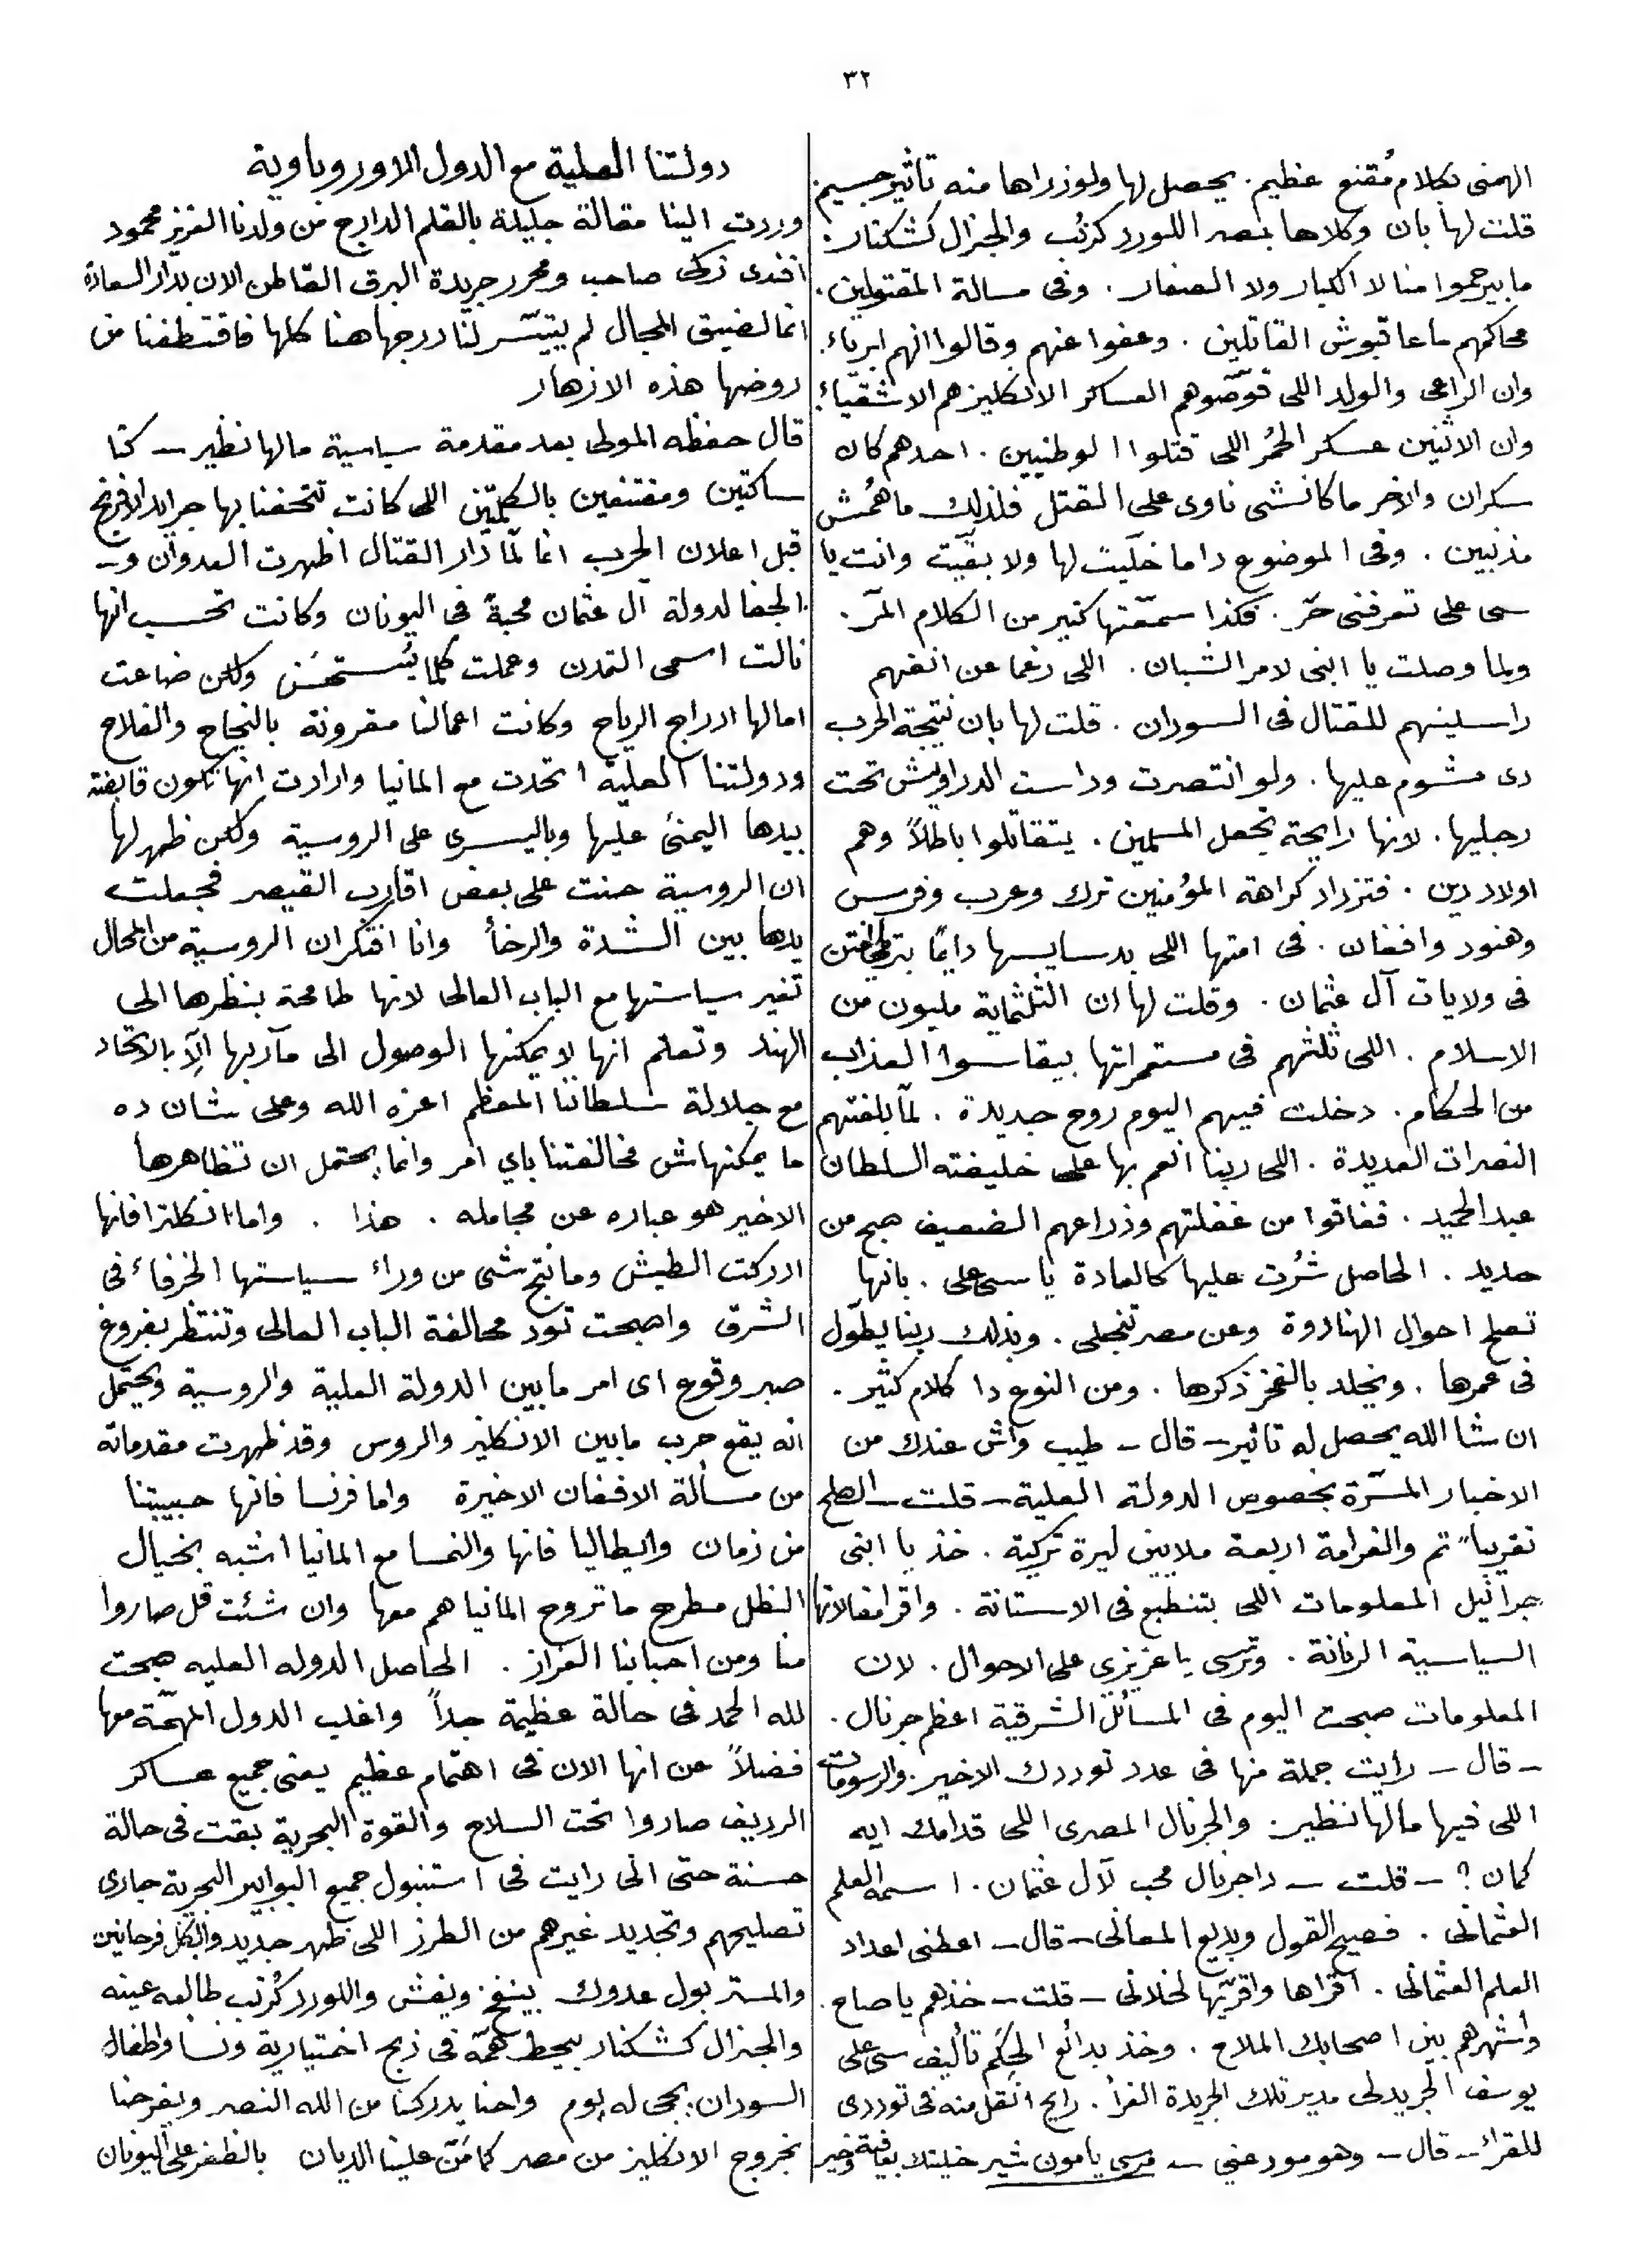 ٣٢
الهمنى بكلام مُقنع عظيم. يحصل لها ولوزراها منه تاثير جسيم.
قلت لها بان وكلاها بمصر اللورد كرنُب والجنرال كشكنار.
ما بيرحموا منا لا الكبار ولا الصغار. وفى مسالة المقتولين.
محاكمهم ما عاقبوش القاتلين. وعفوا عنهم وقالوا انهم ابرياء.
وان الراعى والولد اللى قوّصوهم العساكر الانكليز هم الاشقياء.
وان الاثنين عسكر الحُمر اللى قتلوا الوطنيين. احدهم كان
سكران والاخر ما كانشى ناوى على القتل فلذلك ماهُمش
مذنبين. وفى الموضوع دا ما خلّيت لها ولا بقّيت وانت يا
سى على تعرفنى حرّ. فكذا سمعّتها كتير من الكلام المرّ.
ولما وصلت يا ابنى لامر الشبان. اللى رغما عن انفهم
راسلينهم للقتال فى السودان. قلت لها بان نتيجة الحرب
دى مشوم عليها. ولو انتصرت وداست الدراويش تحت
رجليها. لانها رايحة تجعل المسلمين. يتقاتلوا باطلاً وهم
اولاد دين. فتزداد كراهة المؤمنين ترك وعرب وفرس
وهنود وافغان. فى امتها اللى بدسايسها دايمًا بترمى الفتن
فى ولايات آل عثمان. وقلت لها ان التلثماية مليون من
الاسلام. اللى ثلثهم فى مستمراتها بيقاسوا العذاب
من الحكام. دخلت فيهم اليوم روح جديدة. لمّا بلغتهم
النصرات العديدة. اللى ربنا انعم بها على خليفته السلطان
عبد الحميد. ففاقوا من غفلتهم وذراعهم الضعيف صبح من
حديد. الحاصل شُرت عليها كالعادة يا سى على. بانها
تصلح احوال الهنادوة وعن مصر تنجلى. وبذلك ربنا يطوّل
فى عمرها. ويخلد بالفخر ذكرها. ومن النوع دا كلام كثير.
ان شا الله يحصل له تاثير – قال – طيب واش عندك من
الاخبار المسرّة بخصوص الدولة العلية – قلت – الصلح
تقريباً تم والغرامة اربعة ملايين ليرة تركية. خذ يا ابنى
جرانيل المعلومات اللى بتنطبع فى الاستانة. واقرا مقالاتها
السياسية الرنانة. وترسى يا عزيزى على الاحوال. لان
المعلومات صبحت اليوم فى المسائل الشرقية اعظم جرنال.
– قال – رايت جملة منها فى عدد توددك الاخير. والرسومات
اللى فيها مالها نظير. والجرنال المصرى اللى قدامك ايه
كمان؟ – قلت – دا جرنال محب لآل عثمان. اسمه العلم
العثمانى. فصيح القول وبديع المعانى – قال – اعطنى اعداد
العلم العثمانى. اقراها واقرّيها لخلانى – قلت – خذهم يا صاح.
وأشهرهم بين اصحابك الملاح. وخذ بدائع الحِكَم تأليف سى على
يوسف الجريدلى مدير تلك الجريدة الغرا. رايح انقل منه فى توددى
للقرا – قال – وهو مودعنى – مرسى يا مون شير خليتك بعافية وخير
دولتنا العلية مع الدول الاوروباوية
وردت الينا مقالة جليلة بالقلم الدارج من ولدنا العزيز محمود
افندى زكى صاحب ومحرر جريدة البرق القاطن الان بدار السعادة
انما لضيق المجال لم يتيسّر لنا درجها هنا كلها فاقتطفنا من
روضها هذه الازهار
قال حفظه المولى بعد مقدمة سياسية مالها نظير – كنا
ساكتين ومقتنعين بالكلمتين اللى كانت تتحفنا بها جرايد الافرنج
قبل اعلان الحرب انما لمّا دار القتال اظهرت العدوان و–
الجفا لدولة آل عثمان محبةً فى اليونان وكانت تحسب انها
نالت اسمى التمدن وعملت كلما يُستحسَن ولكن ضاعت
امالها ادراج الرياح وكانت اعمالنا مقرونة بالنجاح والفلاح
ودولتنا العلية اتحدت مع المانيا وارادت انها تكون قابضة
بيدها اليمنى عليها وباليسرى على الروسية ولكن ظهر لها
ان الروسية حنت على بعض اقارب القيصر فجعلت
يدها بين الشدة والرخأ وانا افتكر ان الروسية من المحال
تغير سياستها مع الباب العالى لانها طامحة بنظرها الى
الهند وتعلم انها لا يمكنها الوصول الى مآربها إلاّ بالاتحاد
مع جلالة سلطاننا المعظم اعزه الله وعلى شان ده
ما يمكنهاش مخالفتنا باي امر وانما يحتمل ان تظاهرها
الاخير هو عباره عن مجامله. هذا. واما انكلترا فانها
ادركت الطيش وما نتج شى من وراء سياستها الخرقاء فى
الشرق واصبحت تود محالفة الباب العالى وتنتظر بفروغ
صبر وقوع اى امر مابين الدولة العلية والروسية ويحتمل
انه يقع حرب مابين الانكليز والروس وقد ظهرت مقدماته
من مسألة الافغان الاخيرة واما فرنسا فانها حبيبتنا
من زمان وايطاليا فانها والنمسا مع المانيا اشبه بخيال
الظل مطرح ما تروح المانيا هم معها وان شئت قل صاروا
منا ومن احبابنا العزاز. الحاصل الدوله العليه صبحت
لله الحمد فى حالة عظيمة جداً واغلب الدول المهمّة معها
فضلاً عن انها الان فى اهتمام عظيم يعنى جميع عساكر
الرديف صاروا تحت السلاح والقوة البحرية بقت فى حالة
حسنة حتى انى رايت فى استنبول جميع البوابير البحرية جارى
تصليحهم وتجديد غيرهم من الطرز اللى ظهر جديد والكل فرحانين
والمستر بول عدوك بينفخ وينفش واللورد كُرنب طالعه عينه
والجنرال كشكنار بيحط همّة فى ذبح اختيارية ونسا واطفال
السودان. يجى له يوم واحنا يدركنا من الله النصر ويفرحنا
بخروج الانكليز من مصر كما مَنّ علينا الديان بالظفر على اليونان